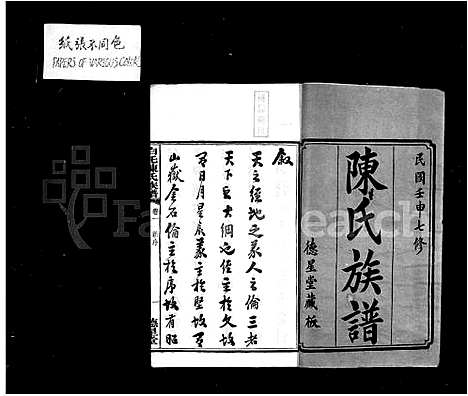 紙張不同色
PAPERS OF VARIOUS COLOR
民國壬申七修
陳氏族譜
德星堂藏板
叙
天之經地之義人之倫三者
天下巨大綱也經主於文故
有日月星辰義主於堅故有
山嶽金石倫主於序故有昭
陳氏族譜
卷一
一
FamilySearch